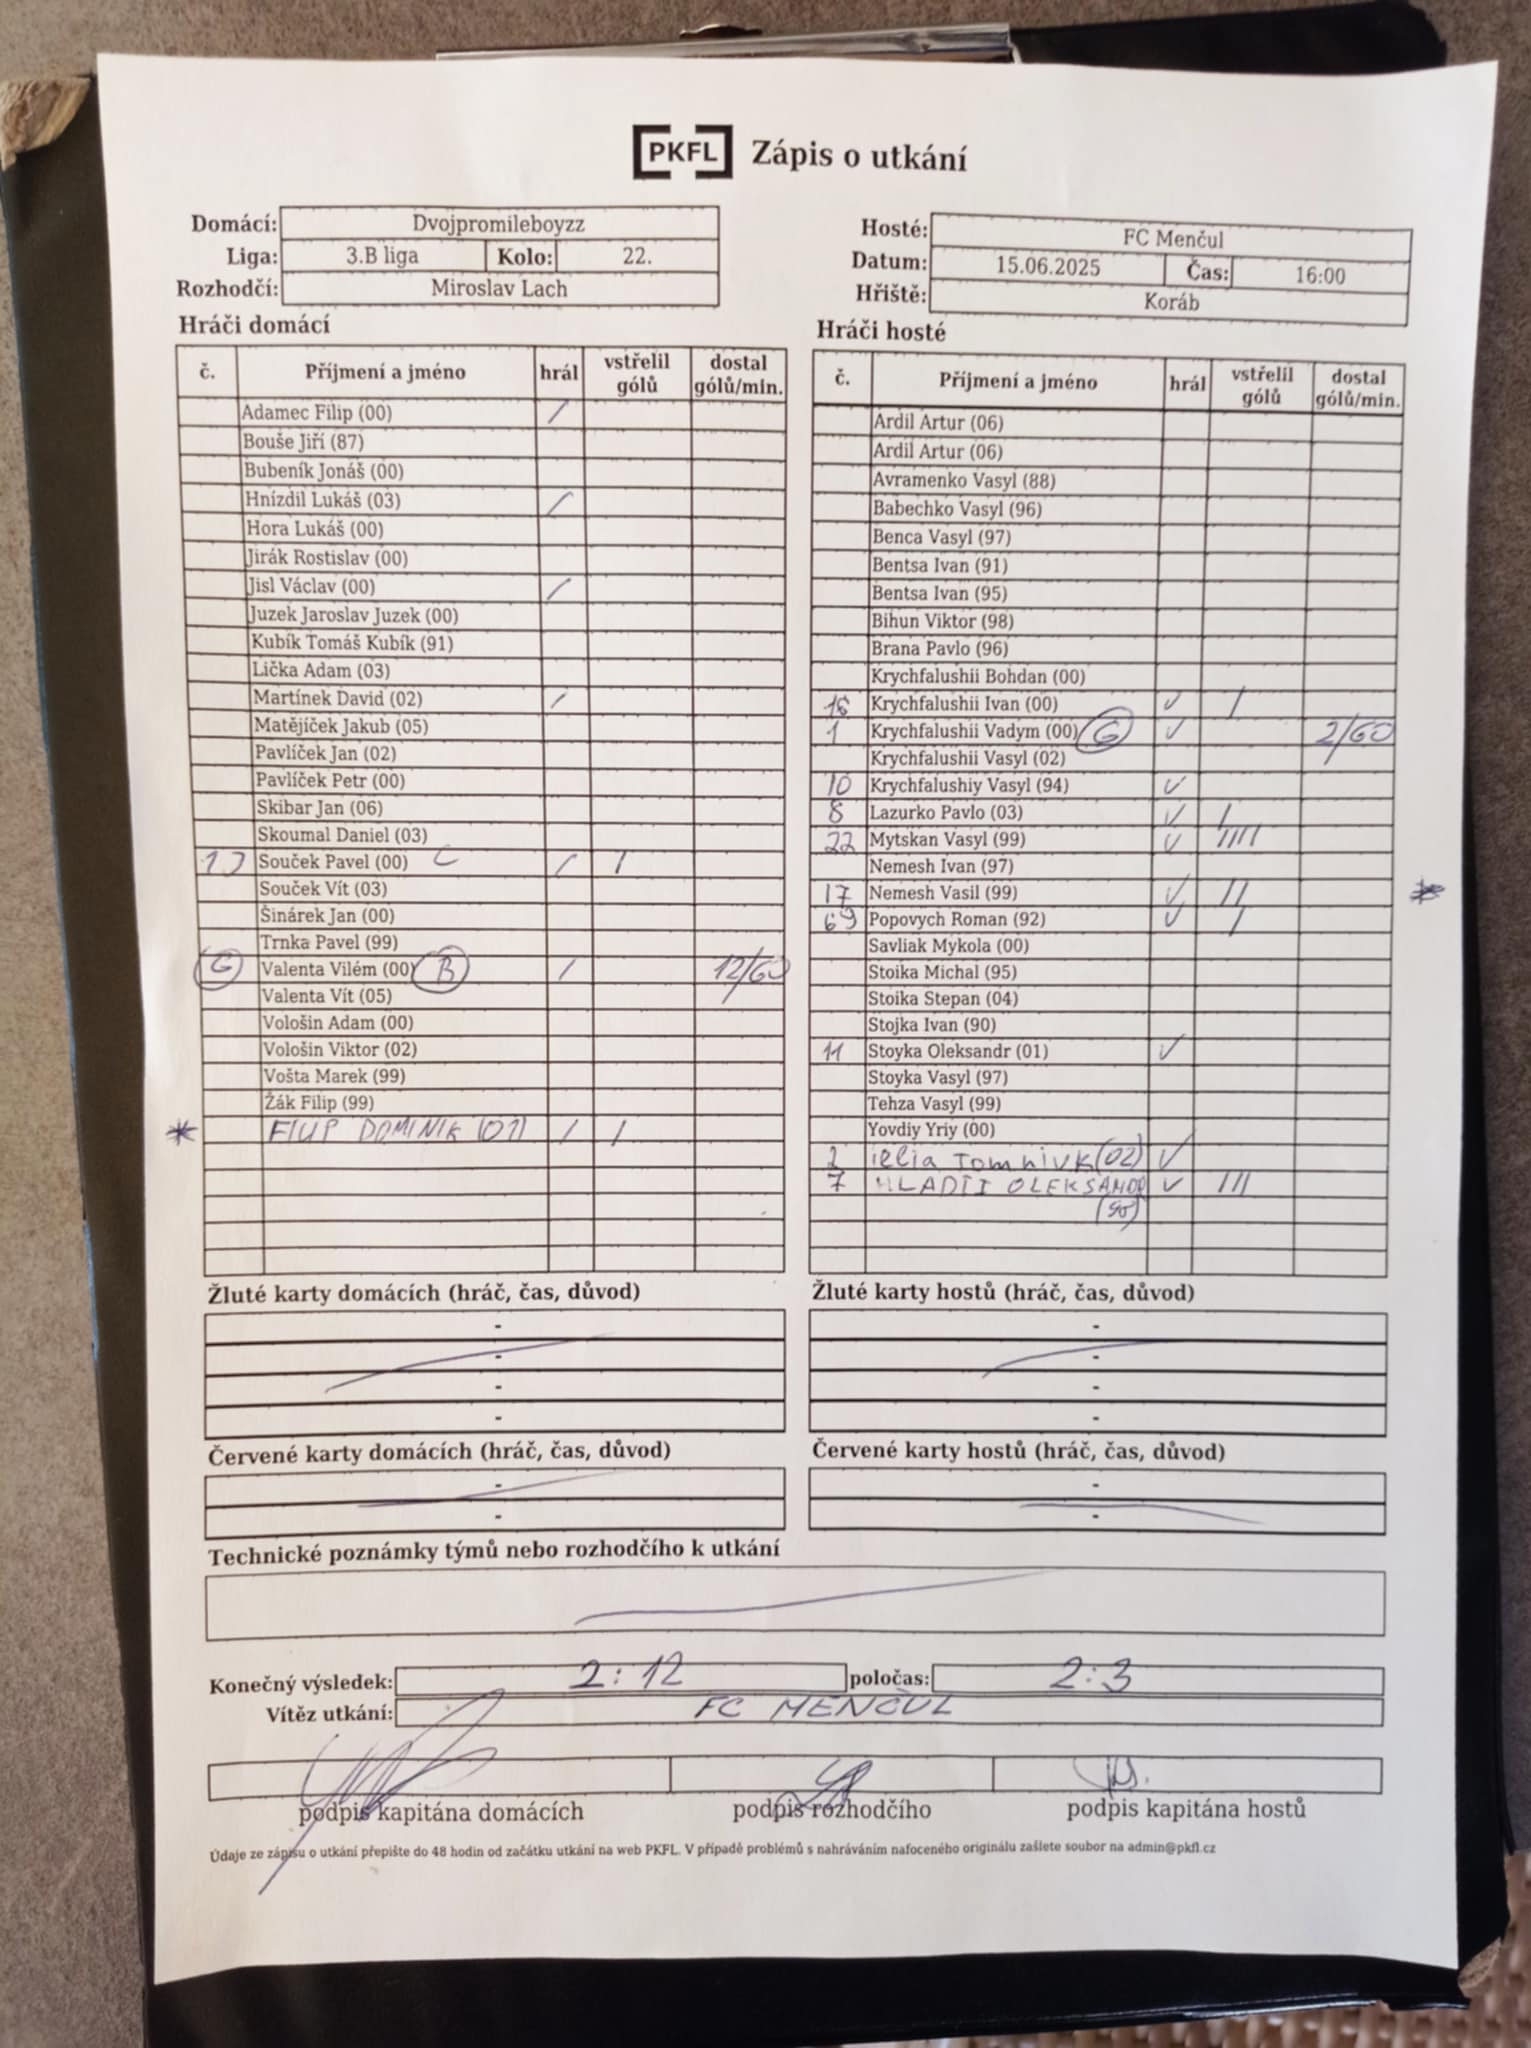 PKFL Zápis o utkání
Domácí: Dvojpromileboyzz
Liga: 3.B liga Kolo: 22.
Rozhodčí: Miroslav Lach
Hosté: FC Menčul
Datum: 15.06.2025 Čas: 16:00
Hřiště: Koráb
Hráči domácí
č. Příjmení a jméno hrál vstřelil gólů dostal gólů/min.
Adamec Filip (00) /
Bouše Jiří (87)
Bubeník Jonáš (00)
Hnízdil Lukáš (03) /
Hora Lukáš (00)
Jirák Rostislav (00)
Jisl Václav (00) /
Juzek Jaroslav Juzek (00)
Kubík Tomáš Kubík (91)
Lička Adam (03)
Martínek David (02) /
Matějíček Jakub (05)
Pavlíček Jan (02)
Pavlíček Petr (00)
Skibar Jan (06)
Skoumal Daniel (03)
Souček Pavel (00) C / /
Souček Vít (03)
Šinárek Jan (00)
Trnka Pavel (99)
G Valenta Vilém (00) B / 12/60
Valenta Vít (05)
Vološin Adam (00)
Vološin Viktor (02)
Vošta Marek (99)
Žák Filip (99)
* FILIP DOMINIK (01) / /
Hráči hosté
č. Příjmení a jméno hrál vstřelil gólů dostal gólů/min.
Ardil Artur (06)
Ardil Artur (06)
Avramenko Vasyl (88)
Babechko Vasyl (96)
Benca Vasyl (97)
Bentsa Ivan (91)
Bentsa Ivan (95)
Bihun Viktor (98)
Brana Pavlo (96)
Krychfalushii Bohdan (00)
16 Krychfalushii Ivan (00) ✓ /
1 Krychfalushii Vadym (00) G ✓ 2/60
Krychfalushii Vasyl (02)
10 Krychfalushiy Vasyl (94) ✓
8 Lazurko Pavlo (03) ✓ /
22 Mytskan Vasyl (99) ✓ ////
Nemesh Ivan (97)
17 Nemesh Vasil (99) ✓ // *
69 Popovych Roman (92) ✓ /
Savliak Mykola (00)
Stoika Michal (95)
Stoika Stepan (04)
Stojka Ivan (90)
11 Stoyka Oleksandr (01) ✓
Stoyka Vasyl (97)
Tehza Vasyl (99)
Yovdiy Yriy (00)
2 (02) ✓
7 OLEKSANDR ✓ ///
Žluté karty domácích (hráč, čas, důvod)
-
-
-
-
Žluté karty hostů (hráč, čas, důvod)
-
-
-
-
Červené karty domácích (hráč, čas, důvod)
-
-
Červené karty hostů (hráč, čas, důvod)
-
-
Technické poznámky týmů nebo rozhodčího k utkání
Konečný výsledek: 2:12 poločas: 2:3
Vítěz utkání: FC MENČUL
podpis kapitána domácích podpis rozhodčího podpis kapitána hostů
Údaje ze zápisu o utkání přepište do 48 hodin od začátku utkání na web PKFL. V případě problémů s nahráváním nafoceného originálu zašlete soubor na admin@pkfl.cz